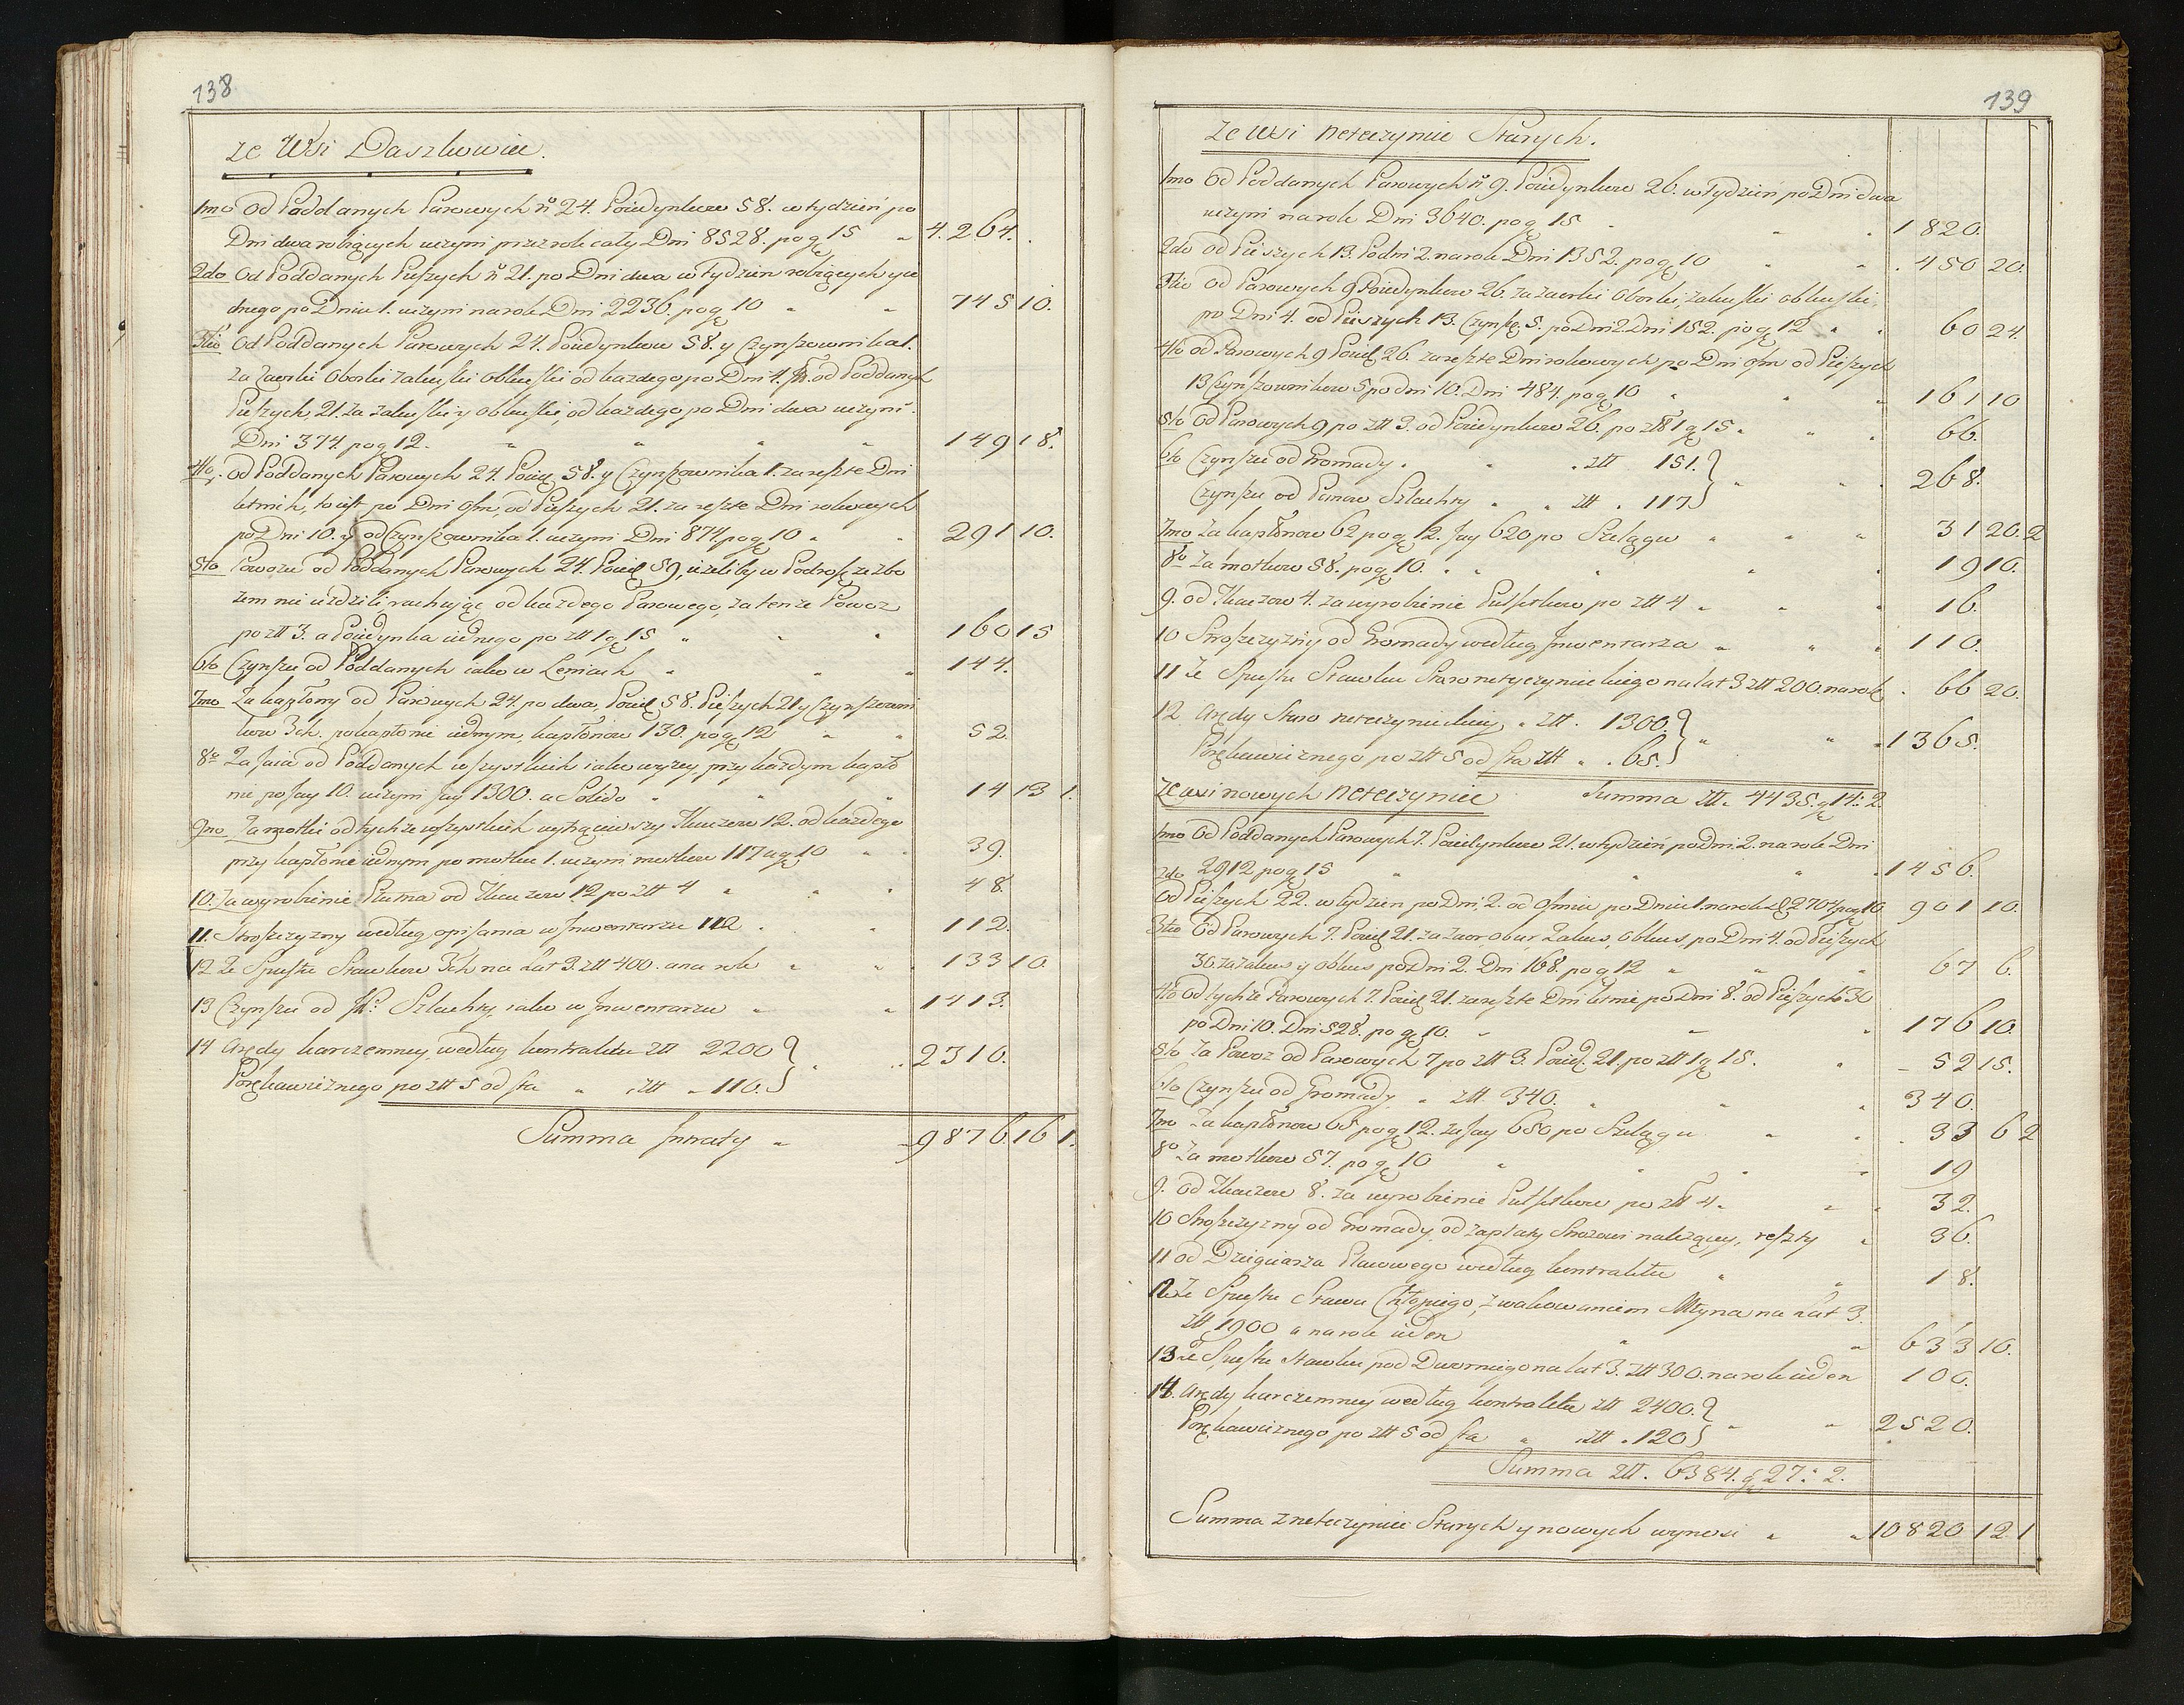 138
ze Wsi Daszkowiec.
1mo Od Poddanych Parowych No 24. Poiedynkow 58. w tydzień po
Dni dwa robiących uczyni przez rok cały Dni 8528. po gr 15 " 4.264.
2do Od Poddanych Pieszych No 21. po Dni dwa w Tydzien robiących y ie
dnego po Dniu 1. uczyni na rok Dni 2236. po gr 10 " " 745 10.
3tio Od Poddanych Parowych 24. Poiedynkow 58. y Czynszownika 1.
za Zaorki Oborki Zakoski Obkoski od kazdego po Dni 4. od Poddanych
Pieszych, 21. za Zakoski y obkoski, od kazdego po Dni dwa uczyni.
Dni 374. po gr 12. " " " " 149 18.
4to. od Poddanych Parowych 24. Poied 58. y Czynszownika 1. za reszte Dni
letnich, to iest po Dni ośm, od Pieszych 21. za reszte Dni rokowych
po Dni 10. y od Czynszownika 1. uczyni Dni 874 po gr 10 " " 291 10.
5to Powozu od Poddanych Parowych 24. Poied 59, ieżeliby w Podroż ze zbo
żem nie ieździli, rachując od każdego Parowego, za tenże Powoz
po złł 3. a Poiedynka iednego po złł 1 gr 15 " " " 160 15
6to Czynszu od Poddanych iako w Leniach " " " 144.
7mo Za kapłony od Parowych 24. po dwa, Poied 58. Pieszych 21 y Czynszowni
kow 3ch. po kapłonie iednym, kapłonow 130. po gr 12 " " 52.
8vo Za Jaia od Poddanych wszystkich iako wyzey, przy każdym kapło
nie po Jay 10. uczyni Jay 1300. a Solido " " " 14 13 1.
9no Za motki od tychże wszystkich wytrąciwszy Tkaczow 12. od każdego
przy kapłonie iednym po motku 1. uczyni motkow 117 a gr 10 " " 39.
10. Za wyrobienie Płutna od Tkaczow 12 po złł 4 " " " 48.
11. Strożczyzny według opisania w Inwentarzu 112 . " 112.
12 Ze Spustu Stawkow 3ch na Lat 3. złł 400. a na rok " " 133 10
13 Czynszu od Szlachty iako w Inwentarzu " " 1413.
14 Arędy karczemney, według kontraktu złł 2200 } " " 2310.
Porękawicznego po złł 5 od sta " złł " 110. }
Summa Intraty " " 9876 16 1.
139
ze Wsi Neteczyniec Starych.
1mo Od Poddanych Parowych No 9. Poiedynkow 26. w Tydzień po Dni dwa
uczyni na rok Dni 3640. po gr 15 " " " 1820.
2do od Pieszych 13. Po dni 2. na rok Dni 1352. po gr 10 " " . 450 20.
3tio od Parowych 9 Poiedynkow 26. za zaorki Oborki, zakoski obkoski,
po Dni 4. od Pieszych 13. Czynsz. 5. po Dni 2 Dni 152. po gr 12 " " 60 24.
4to od Parowych 9 Poied 26. za reszte Dni rokowych po Dni ośm od Pieszych
13 Czynszownikow 5 po dni 10. Dni 484. po gr 10 " " " 161 10
5to od Parowych 9 po złł 3. od Poiedynkow 26. po złł 1 gr 15 " " " 66.
6to Czynszu od Gromady . " . złł 151. } " " 268.
Czynszu od Panow Szlachty " " złł " 117 }
7mo Za kapłonow 62 po gr 12. Jay 620 po Szelągu " " " 31 20. 2
8vo Za motkow 58. po gr 10. " " " " 19 10.
9. od Tkaczow 4. za wyrobienie Pułsetkow po złł 4 " " " 16.
10 Strożczyzny od Gromady według Inwentarza " " " 110.
11 Ze Spustu Stawku Staroneteczynieckiego na lat 3 złł 200. na rok . 66 20.
12 Arędy Staro neteczynieckiey " złł . 1300. } " " " 1365.
Porękawicznego po złł 5 od sta złł " . 65. }
Ze wsi nowych Neteczyniec Summa złł. 4435. gr 14: 2.
1mo Od Poddanych Parowych 7. Poiedynkow 21. w tydzień po Dni. 2. na rok Dni
2912 po gr 15 " " " " 1456.
2do od Pieszych 22. w tydzien po Dni, 2. od ośmiu po Dniu 1. na rok D 2704 po gr 10 901 10.
3tio Od Parowych 7. Poied 21. za zaor, obor, Zakos, obkos, po Dni 4. od Pieszych
30. za zakos y obkos po Dni 2. Dni 168. po gr 12 " " " 67 6.
4to od tychże Parowych 7. Poied 21. za reszte Dni letnie po Dni 8. od Pieszych 30
po Dni 10. Dni 528. po gr 10. " " " 176 10.
5to Za Powoz od Parowych 7 po złł 3. Poied. 21. po złł 1 gr 15. " " 52 15.
6to Czynszu od Gromady " złł. 340. " " " 340.
7mo Za kapłonow 65 po gr 12. za Jay 650 po Szelągu " " . 33 6 2
8vo Za motkow 57. po gr 10 " " " " 19
9. od Tkaczow 8. za wyrobienie Pułsetkow po złł 4 " " " 32.
10 Strożczyzny od Gromady, od zapłaty Strożowi należącey, reszty " 36.
11 od Dziegciarza Placowego według kontraktu " " 18.
12 Ze Spustu Stawu Chłopiego, z wakowaniem Młyna na Lat 3.
złł 1900 a na rok ieden " " 633 10.
13 Ze Spustu Stawku pod Dwornego na lat 3. złł 300. na rok ieden 100.
14. Arędy karczemney według kontraktu złł 2400. } " " 2520.
Porękawicznego po złł 5 od sta " złł . 120 }
Summa złł. 6384. gr 27: 2.
Summa z neteczyniec Starych y nowych wynosi " " 10820 12. 1